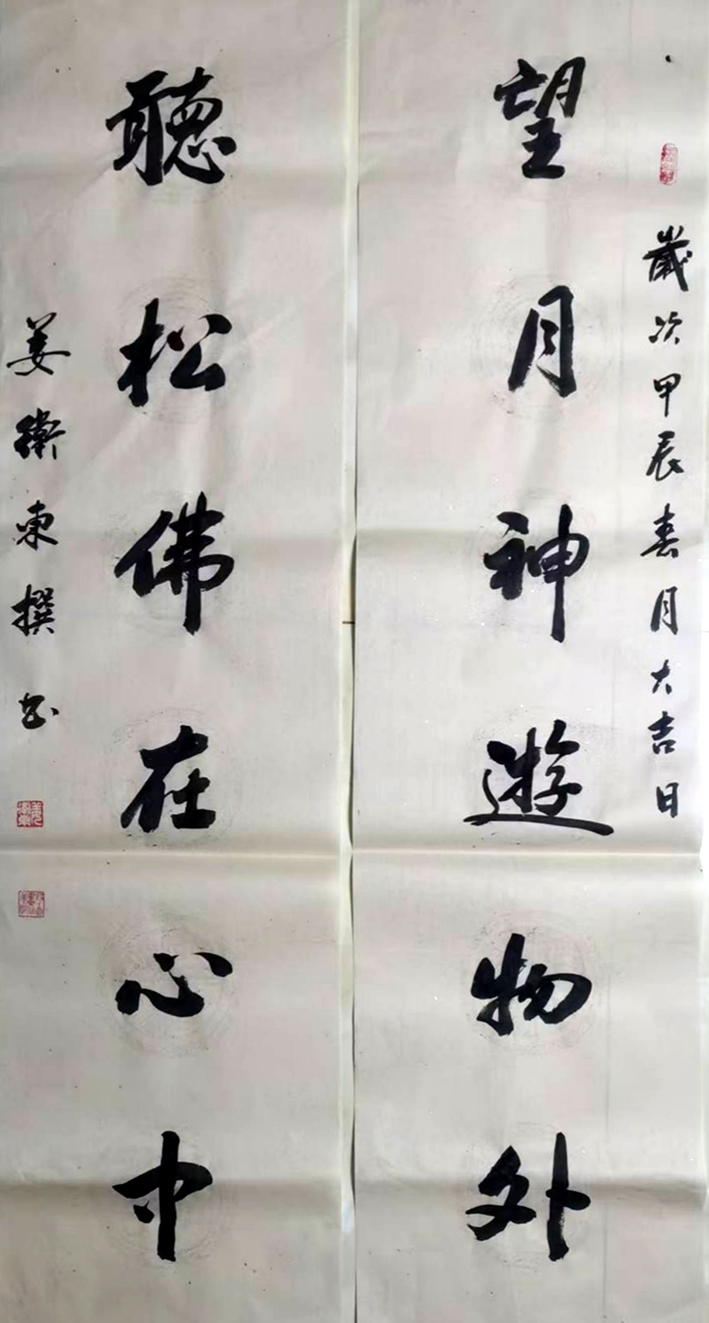 歲次甲辰春月大吉日
望月神遊物外
聽松佛在心中
姜衛東撰书